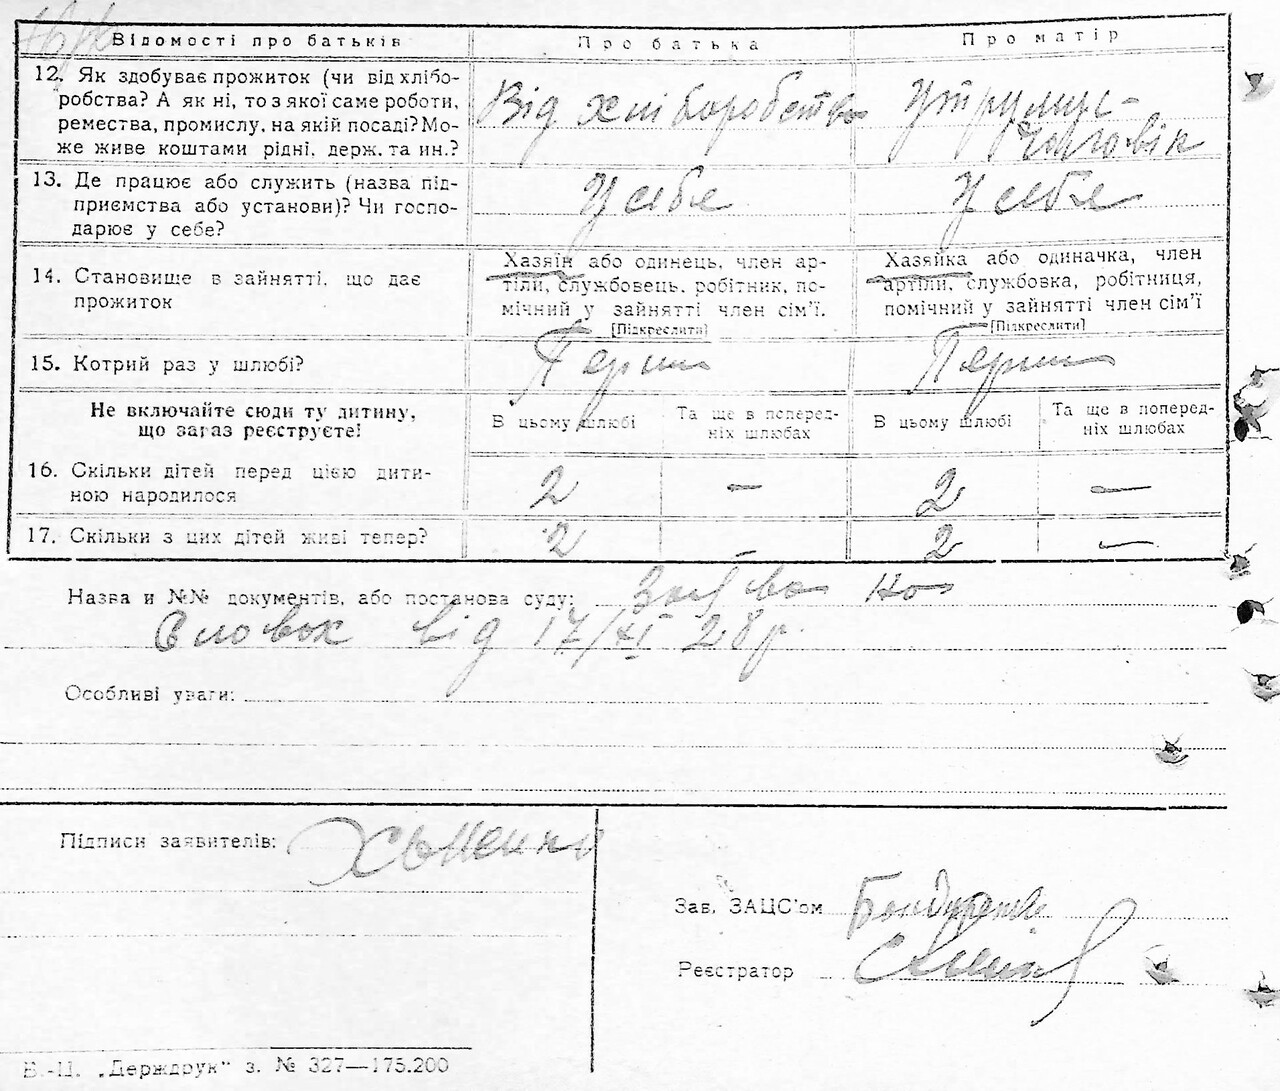 Відомості про батьків
Про батька
Про матір
12. Як здобуває прожиток (чи від хлібо-
робства? А як ні, то з якої саме роботи,
ремества, промислу, на якій посаді? Мо-
же живе коштами рідні, держ. та ин.?
Від хліборобства
Утримує
чоловік
13. Де працює або служить (назва під-
приємства або установи)? Чи госпо-
дарює у себе?
У себе
У себе
14. Становище в зайнятті, що дає
прожиток
Хазяїн або одинець, член ар-
тіли, службовець, робітник, по-
мічний у зайнятті член сім'ї.
[Підкреслити]
Хазяйка або одиначка, член
артіли, службовка, робітниця,
помічний у зайнятті член сім'ї
[Підкреслити]
15. Котрий раз у шлюбі?
Перши
Перши
Не включайте сюди ту дитину,
що зараз реєструєте!
В цьому шлюбі
Та ще в поперед-
ніх шлюбах
В цьому шлюбі
Та ще в поперед-
ніх шлюбах
16. Скільки дітей перед цією дити-
ною народилося
2
—
2
—
17. Скільки з цих дітей живі тепер?
2
—
2
—
Назва и №№ документів, або постанова суду:
від 17/XI 28 р.
Особливі уваги:
Підписи заявителів:
Зав. ЗАЦС'ом
Реєстратор
В.-Ц. „Держдрук" з. № 327—175.200